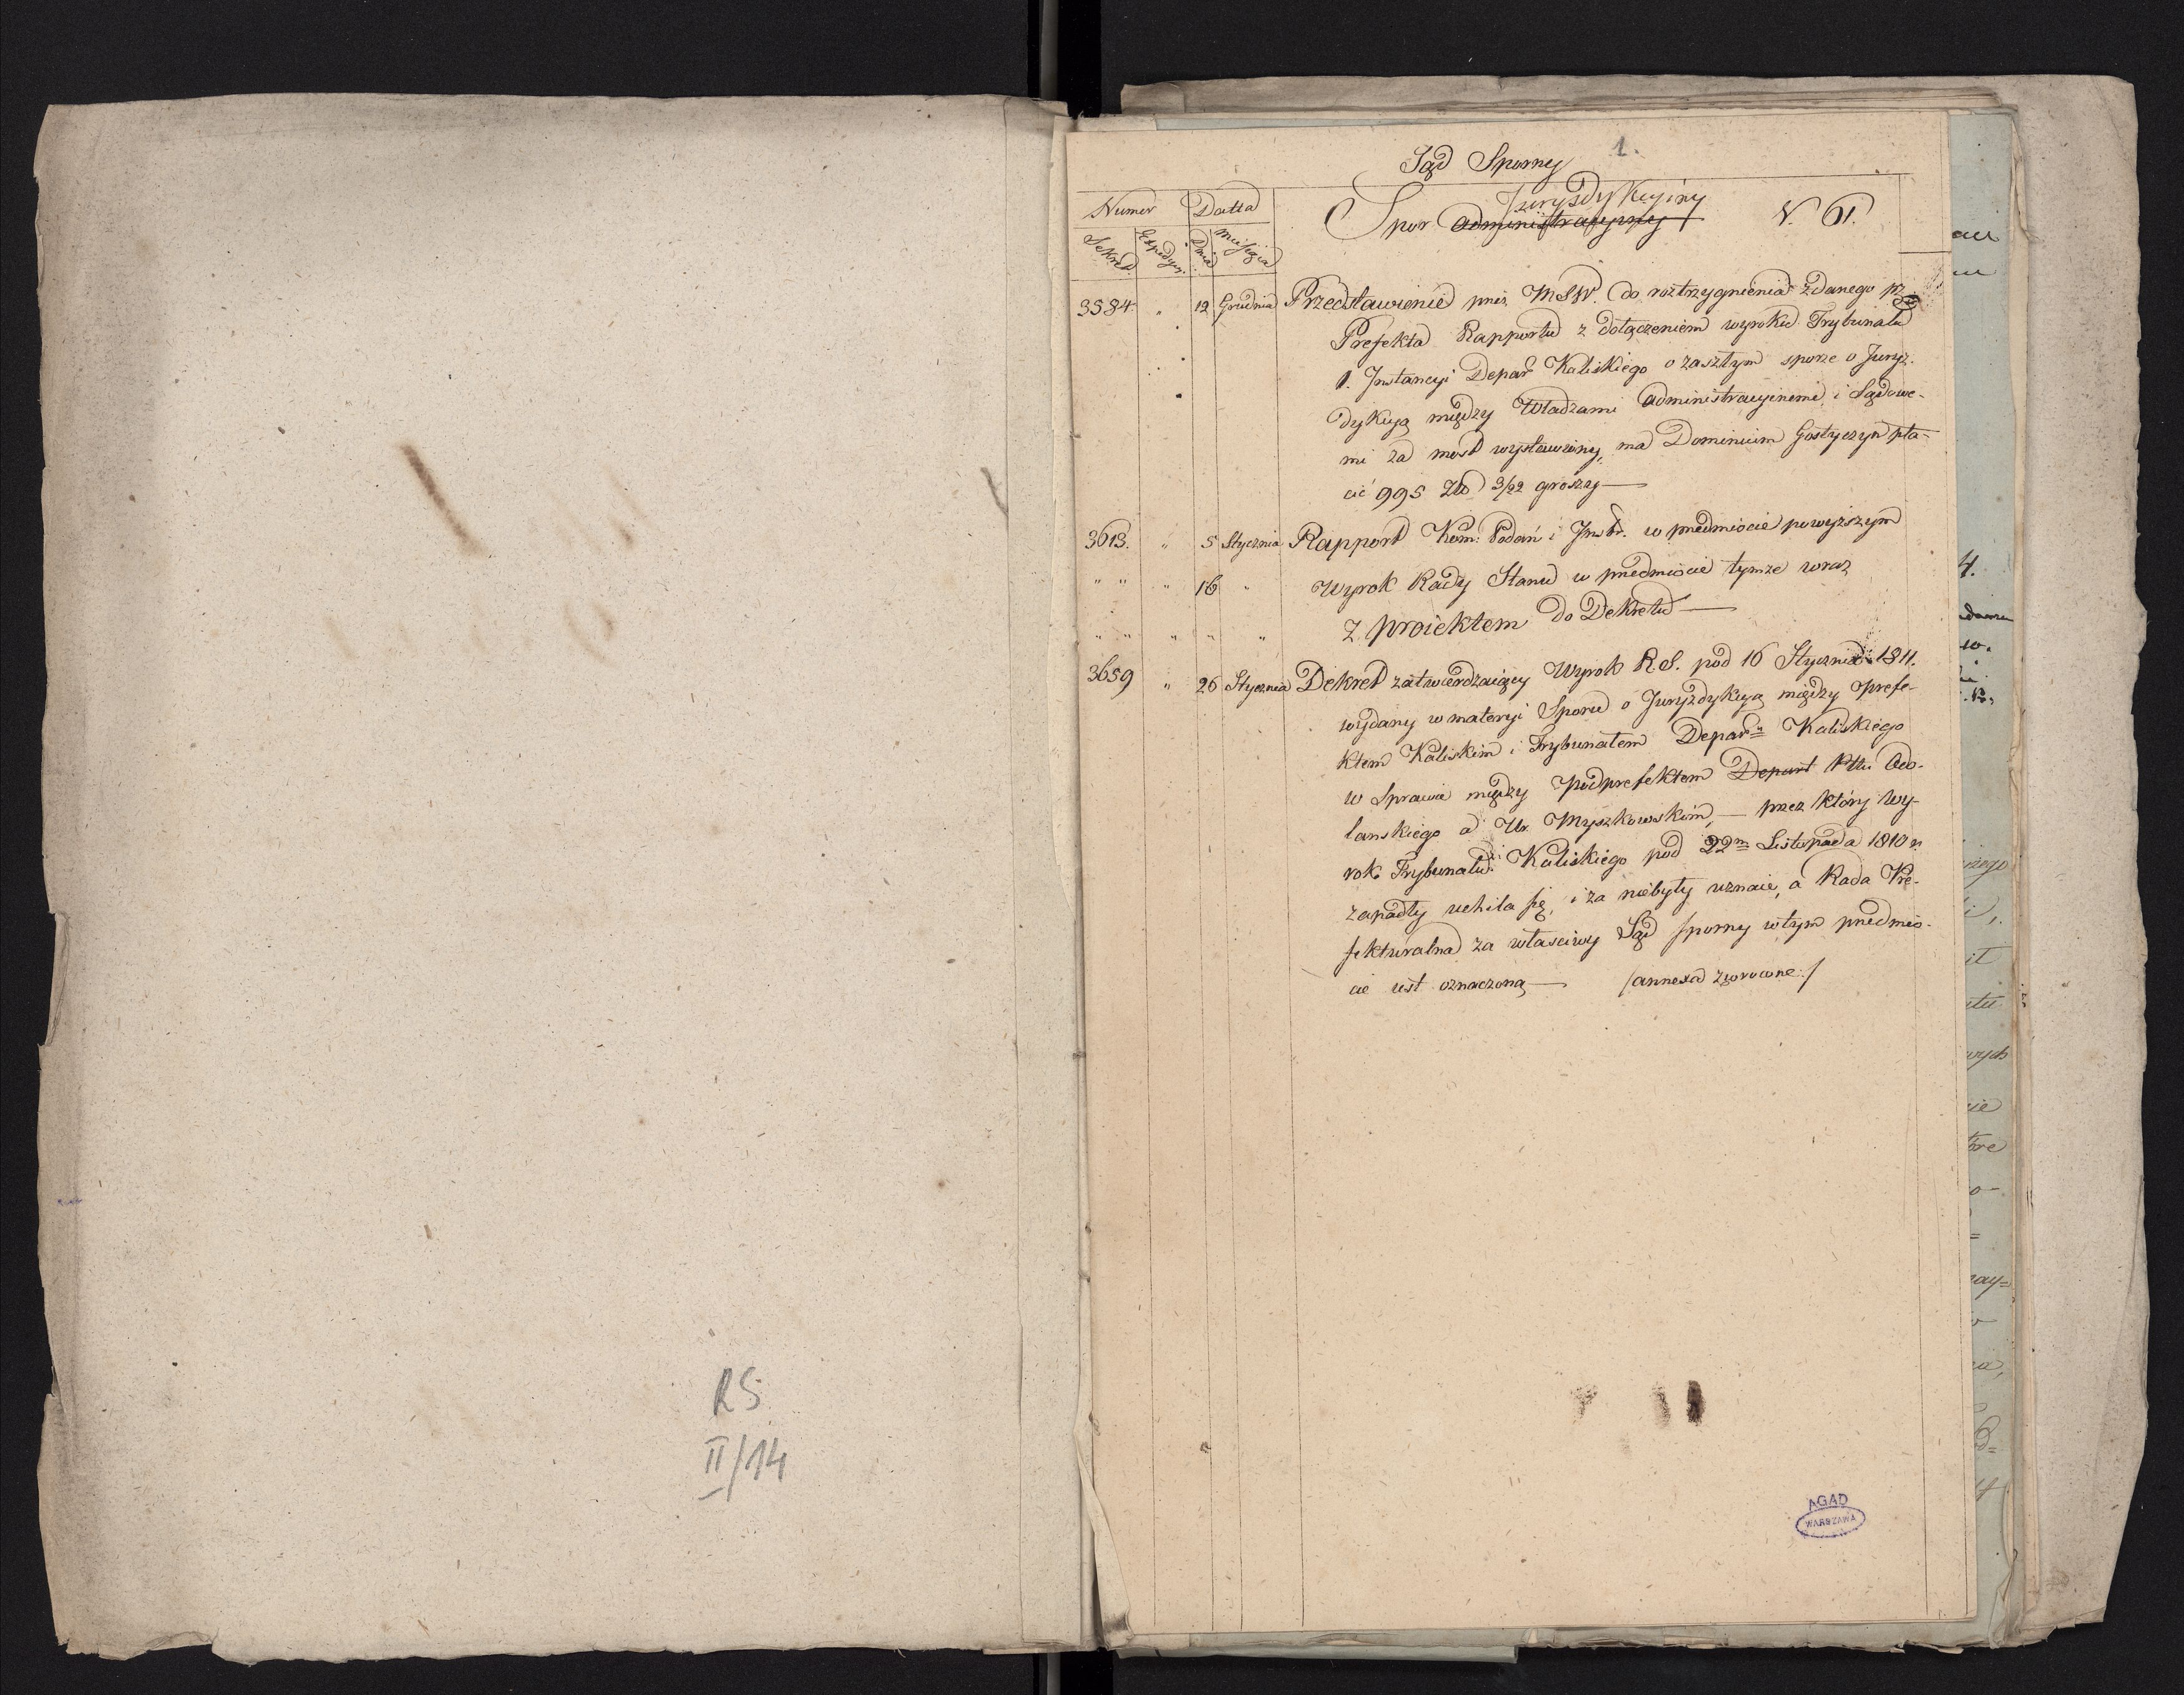 RS
II/14
1.
Sąd Sporny
Numer Datta
Sekret. Expedycyi. Dnia Miesiąca
Spor administracyiny Jurysdykcyiny N. 61.
3584. " 12 Grudnia Przedstawienie przez MSW. do roztrzygnienia zdanego prz
Prefekta Rapportu z dołączeniem wyroku Trybunału
1. Instancyi Depar Kaliskiego o zaszłym sporze o Juryz-
dykcyą między Władzami administracyinemi i Sądowe-
mi za most wystawiony, ma Dominium Gostyczyn pła-
cić 995 Zło 3/22 groszy —
3613. " 5 Stycznia Rapport Kom: Podań i Instr. w przedmiocie powyższym
" " " 16 " Wyrok Rady Stanu w przedmiocie tymże wraz
" " " " " z proiektem do Dekretu —
3659 " 26 Stycznia Dekret zatwierdzaiący Wyrok R.S. pod 16 Stycznia 1811.
wydany w materyi Sporu o Juryzdykcyą między Prefe-
ktem Kaliskim i Trybunałem Depar Kaliskiego
w Sprawie między Podprefektem Depart Pttu Odo-
lanskiego a Ur. Myszkowskim, — przez który Wy-
rok Trybunału Kaliskiego pod 22m Listopada 1810 r.
zapadły uchila się, i za niebyły uznaie, a Rada Pre-
fekturalna za własciwy Sąd sporny w tym przedmio-
cie iest oznaczoną — /annexa zwrocone:/
AGAD
WARSZAWA